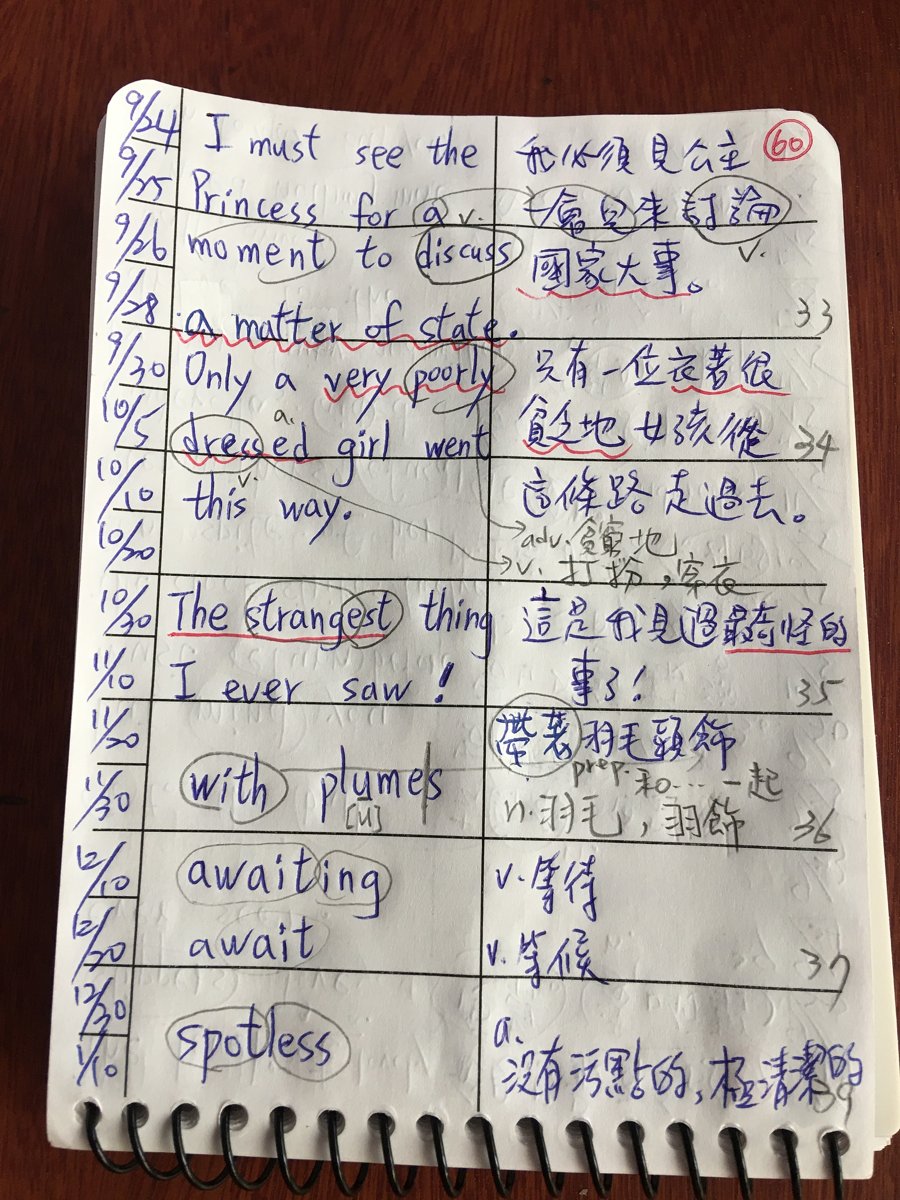 9/24
9/25
9/26
9/28
9/30
10/5
10/10
10/20
10/30
11/10
11/20
11/30
12/10
12/20
12/30
1/10
I must see the
Princess for a
v.
moment to discuss
a matter of state.
我必須見公主
60
一會兒來討論
v.
國家大事。
33
Only a very poorly
a.
dressed girl went
v.
this way.
只有一位衣著很
貧乏地女孩從
34
這條路走過去。
adv. 貧窮地
v. 打扮,穿衣
The strangest thing
I ever saw!
這是我見過最奇怪的
事了!
35
with plumes
[u]
帶著羽毛頭飾
prep. 和....一起
n. 羽毛,羽飾
36
awaiting
await
v. 等待
v. 等候
37
spotless
a.
沒有污點的,極清潔的
39